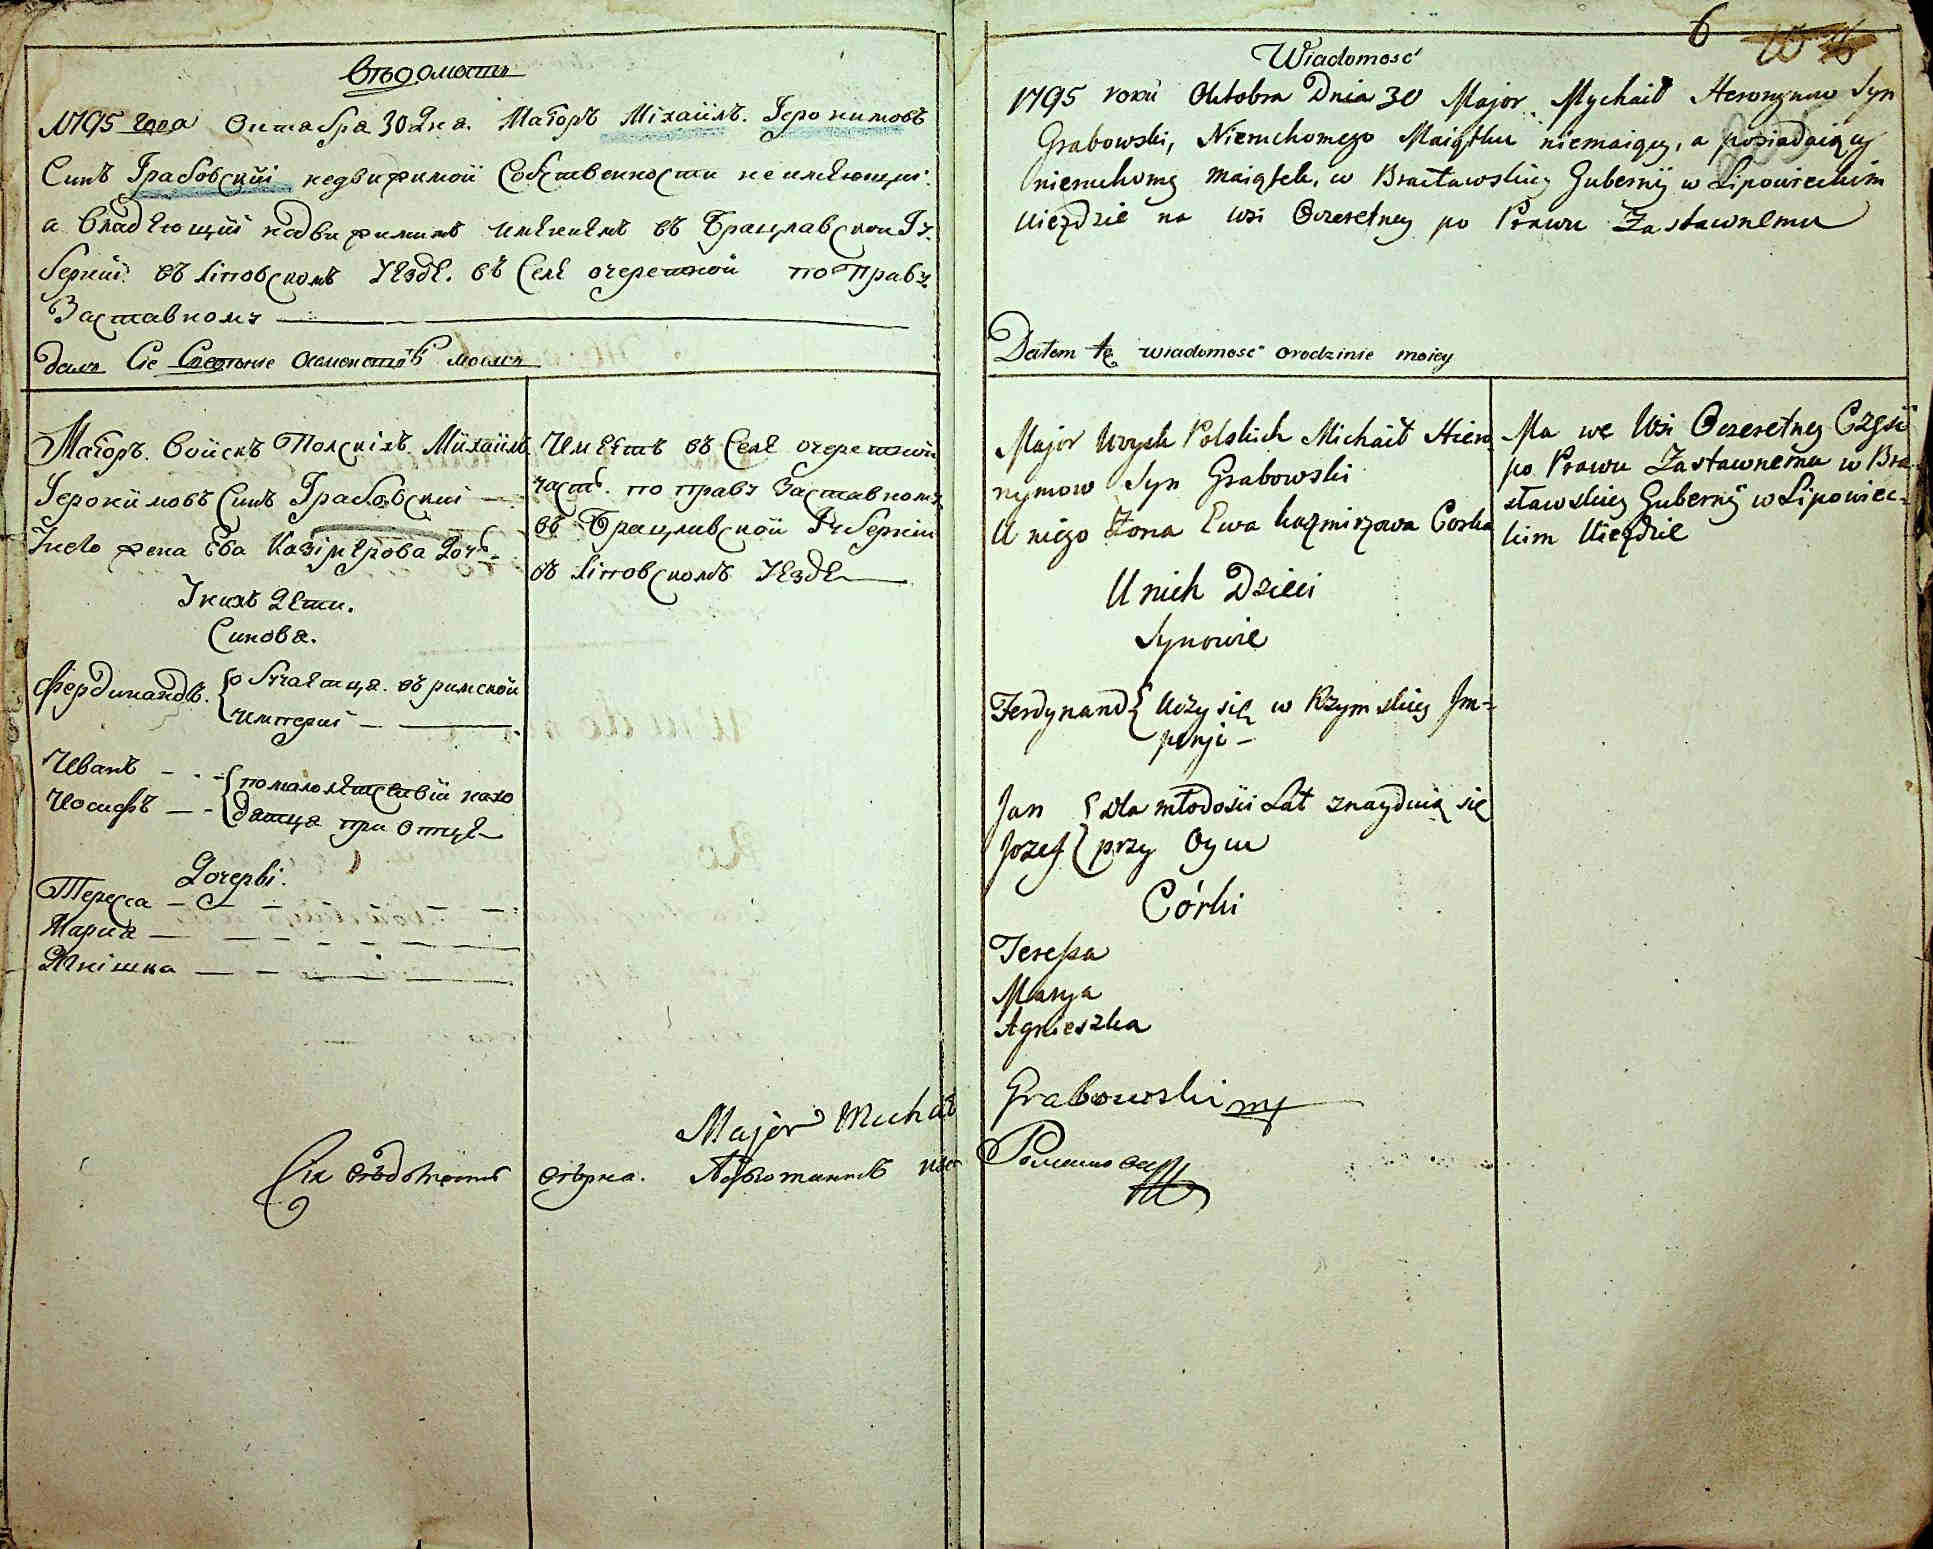 Вѣдомость
1795 года Октабра 30 дня. Маіоръ Міхаилъ. Іеронимовъ
Синъ Грабовскіі недвижимой Собственности неимеющиі.
а владеющиі надвижимимъ имениемъ въ Брацлавской Гу-
берніи. въЛіповскомъ Уезде. въ Селе очеретной по праву
Заставному
даю Сіе
Маіоръ. Войскъ Полскіхъ. Михаилъ
Іеронимовъ Синъ Грабовскиі
Унего жена Ева Казіміррова Дочь
Унихъ Дети.
Синова.
Фердинандъ. обучаетца. въ римской
империі
Иванъ
Иосифъ
помалолетствію нахо
дятца при отце
Дочерьі.
Тересса
Мариа
Янішка
Имеетъ въ Селе очеретной
часть. по праву Заставному
въ Брацлавской Губерніи
въ Ліповскомъ Уезде
Major Michał
Сія вѣдомость вѣрна.
6
Wiadomość
1795 roku Oktobra Dnia 30 Major Mychaił Heronymow Syn
Grabowski, Nieruchomego Maiątku niemaiący, a posiadaiący
nieruchomy maiątek, w Bracławskiey Gubernij w Lipowieckim
Uiezdzie na wsi Oczeretney po Prawu Zastawnemu
Dałem tę wiadomość orodzinie moiey
Major Woysk Polskich Michaił Hiero-
nymow Syn Grabowski
U niego Żona Ewa kazmirzowa Corka
U nich Dzieci
Synowie
Ferdynand uczy się w Rzymskiey Jm-
perji
Jan
Jozef
dla młodości Lat znayduią się
przy Oycu
Córki
Teressa
Marya
Agnieszka
Ma we Wsi Oczeretney Części
po Prawu Zastawnemu w Bra-
cławskiey Gubernij w Lipowiec-
kim Uiezdzie
Grabowski mp